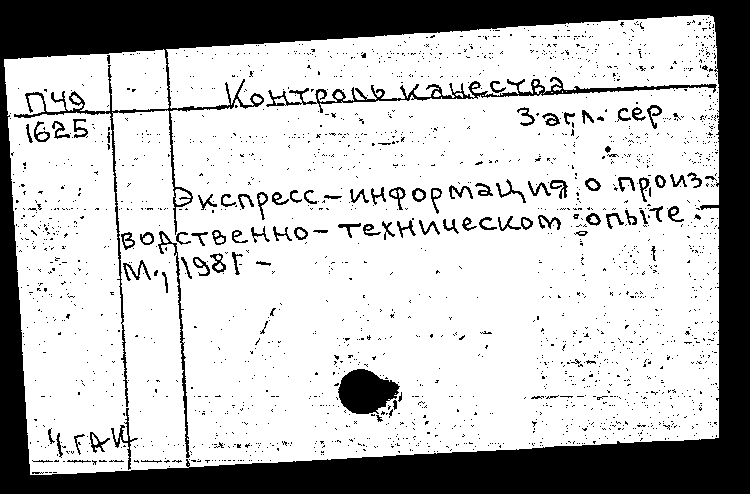 П49
1625
Контроль качества.
Загл. сер.
Экспресс-информация о произ-
водственно-техническом опыте. -
М., 1981 -
Ч.ГАК